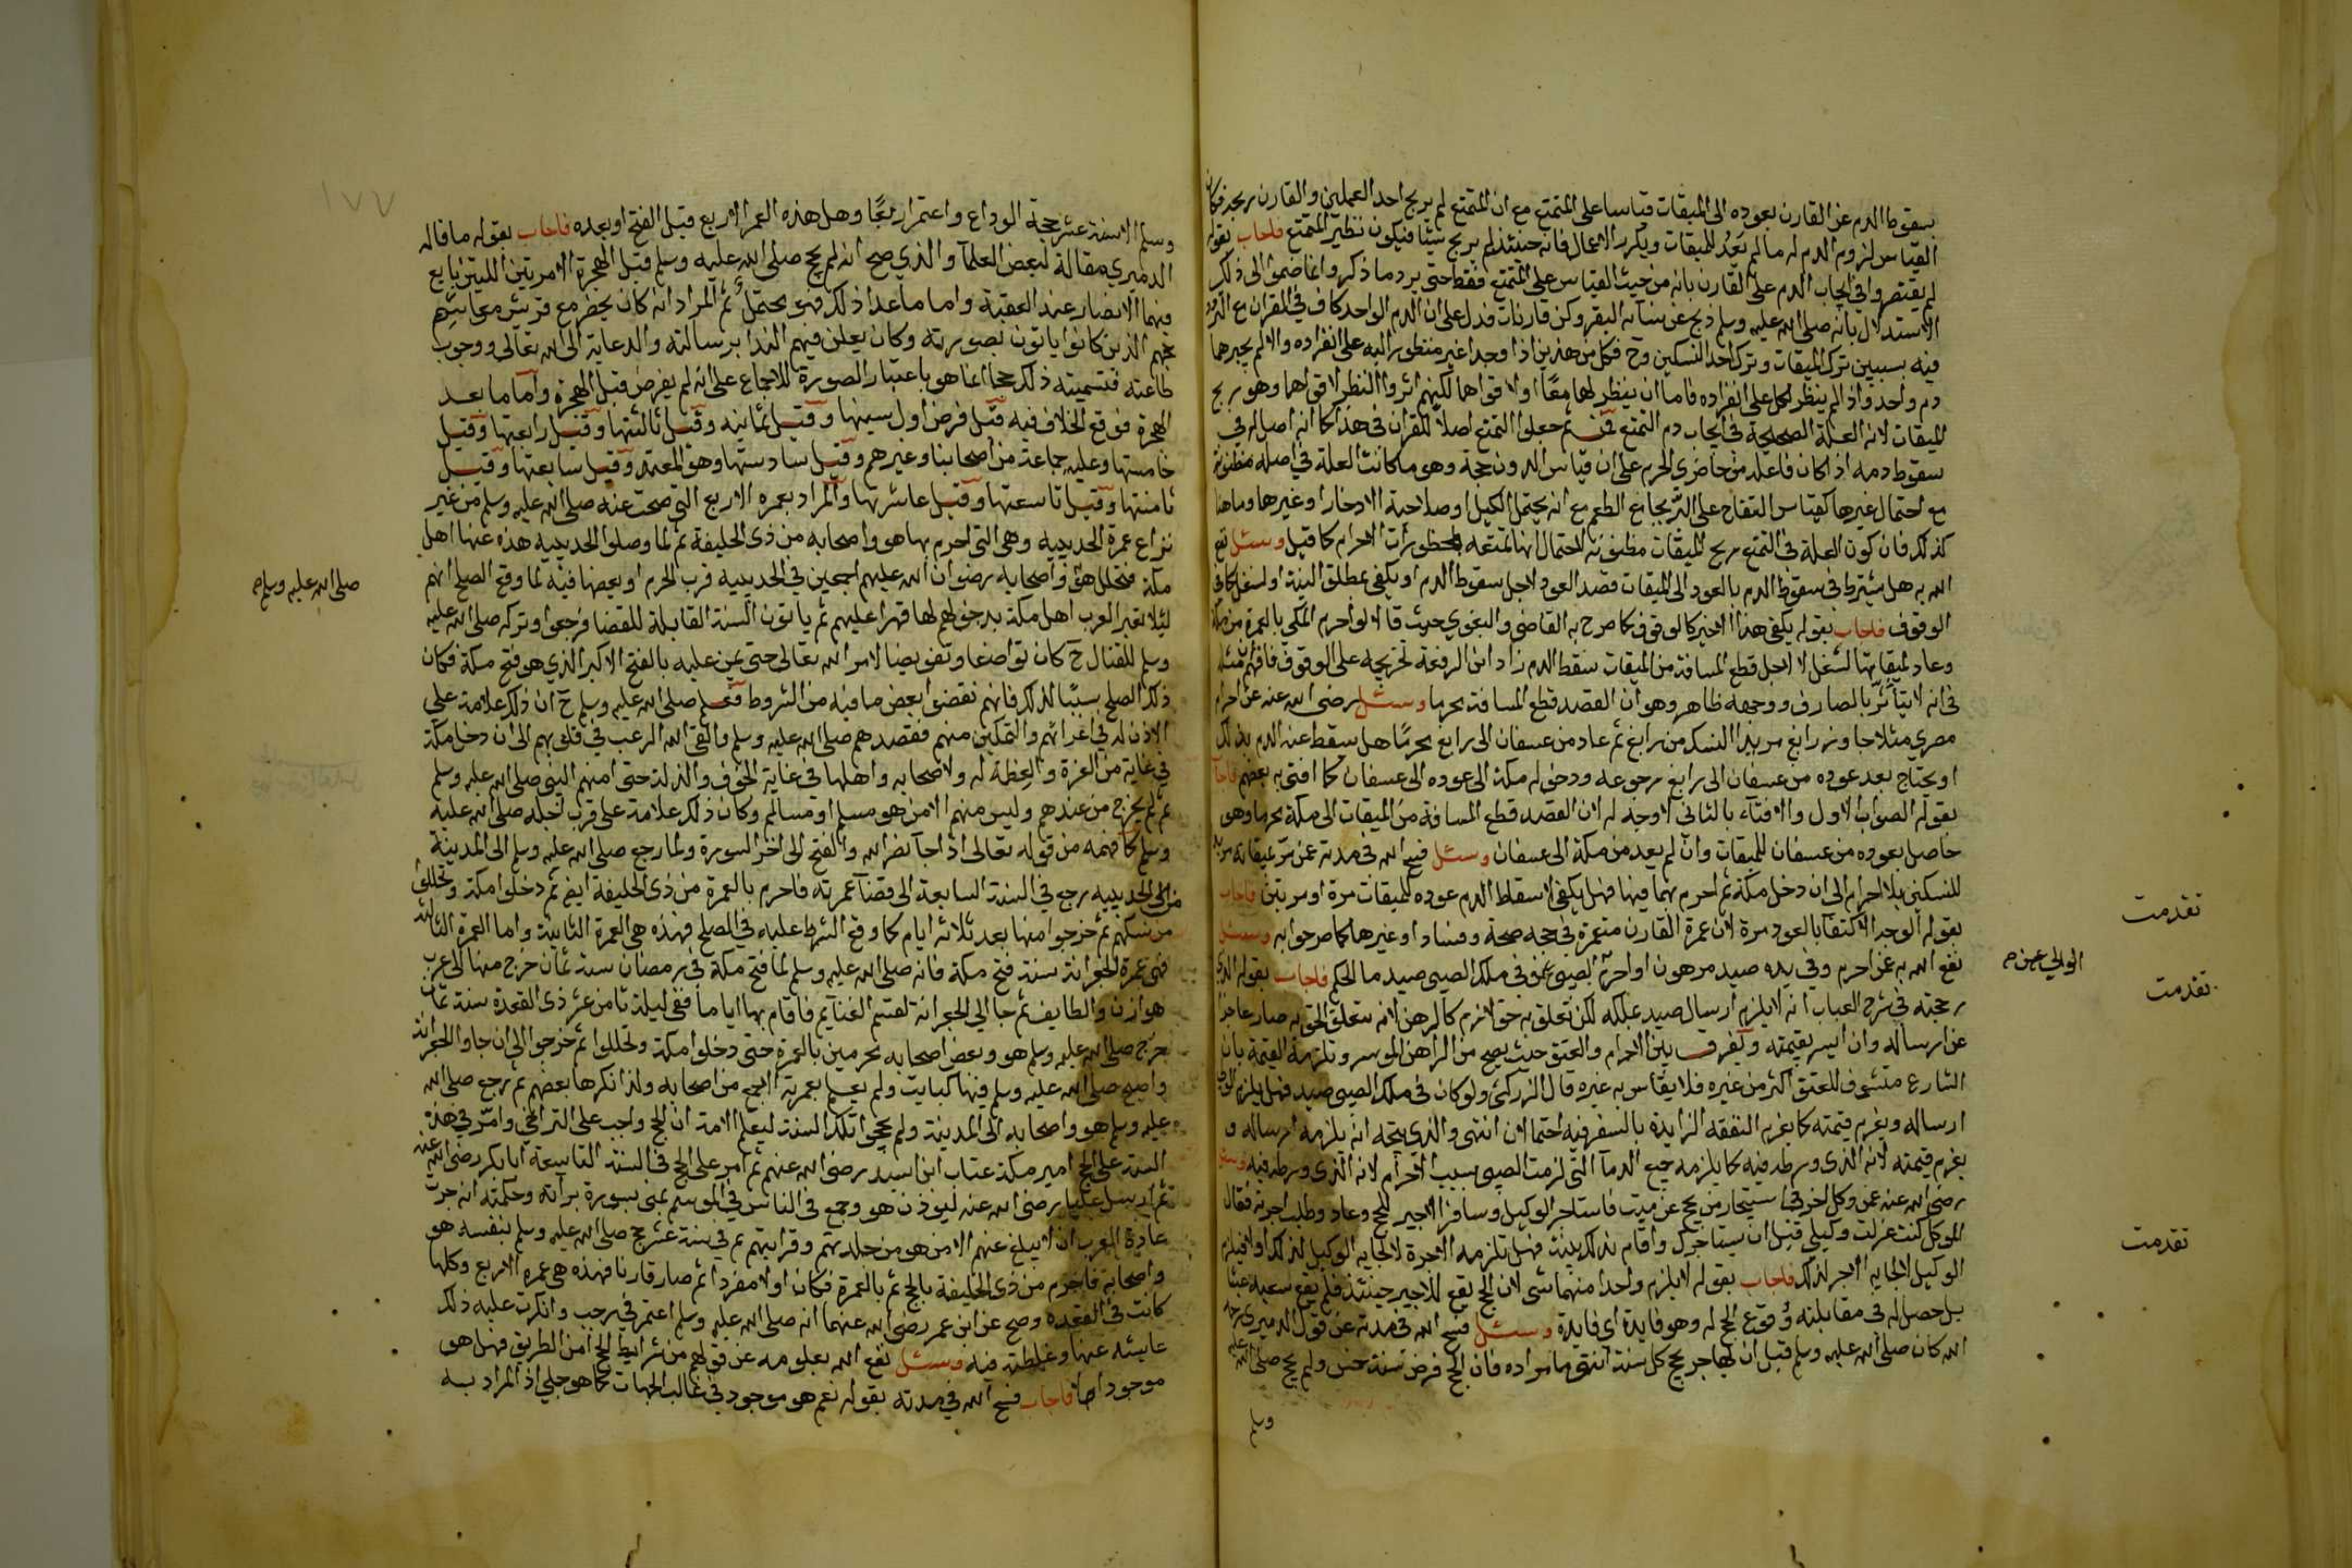 بسقوط الدم عن القارن بعوده الى الميقات قياسا على المتمتع مع ان المتمتع لم يربح احد العملين والقارن ربحه فكان
القياس لزوم الدم له ما لم يعد للميقات ويكرر الاعمال فانه حينئذ لم يربح شيئا فيكون نظير المتمتع فاجاب بقوله
لم يقتصروا في ايجاب الدم على القارن بانه من حيث القياس على المتمتع فقط حتى يرد ما ذكر وانما ضموا الى ذلك
الاستدلال بانه صلى الله عليه وسلم ذبح عن نسائه البقر وكن قارنات فدل على ان الدم الواحد كاف في القران مع
فيه بسببين ترك الميقات وترك احد النسكين وح فكل من هذين اذا وجد غير منظور اليه على انفراده والا لم يجبرهما
دم واحد واذا لم ينظر لكل على انفراده فاما ان ينظر لهما معًا او لاقواهما لكنهم اثروا النظر لاقواهما وهو ربح
الميقات لانه العلة الصحيحة في ايجاب دم التمتع ومن ثم جعلوا التمتع اصلا للقران في هذا كما انه اصل له في
سقوط دمه اذا كان فاعله من حاضري الحرم على ان قياس الدون حجة وهو ما كانت العلة في اصله مظنونة
مع احتمال غيرها كقياس التفاح على البر بجامع الطعم مع انه يحتمل الكيل او صلاحية الادخار او غيرها وما هنا
كذلك فان كون العلة في التمتع ربح الميقات مظنونة لاحتمال انها تمتعه بمحظورات الاحرام كما قيل وسئل نفع
الله به هل يشترط في سقوط الدم بالعود الى الميقات قصد العود لاجل سقوط الدم او يكفي مطلق النية او لشغل كما في
الوقوف فاجاب بقوله يكفي هذا الاخير كالوقوف كما صرح به القاضي والبغوي حيث قالا لو احرم المكي بالعمرة من مكة
وعاد لميقاتها لشغل لا لاجل قطع المسافة من الميقات سقط الدم زاد ابن الرفعة تخريجه على الوقوف فافهم مثله
في انه لا يتأثر بالصارف ووجهه ظاهر وهو ان القصد قطع المسافة محرما وسئل رضي الله عنه عن احرام
مصري مثلا جاوز رابغ مريدا النسك من رابغ ثم عاد من عسفان الى رابغ محرمًا هل يسقط عنه الدم بذلك
او يحتاج بعد عوده من عسفان الى رابغ رجوعه ودخوله مكة الى عوده الى عسفان كما افتى به بعضهم فاجاب
بقوله الصواب الاول والافتاء بالثاني لا وجه له لان القصد قطع المسافة من الميقات الى مكة محرما وهو
حاصل بعوده من عسفان للميقات وان لم يعد من مكة الى عسفان وسئل فسح الله في مدته عمن مر بميقاته مريدا
للنسكين بلا احرام الى ان دخل مكة ثم احرم بهما فيها فهل يكفي لاسقاط الدم عوده للميقات مرة او مرتين فاجاب
بقوله الوجه الاكتفا بالعود مرة لان عمرة القارن منغمرة في حجه صحة وفسادا وغيرها كما صرحوا به وسئل
نفع الله به عمن احرم وفي يده صيد مرهون او احرم الصبي عمن في ملك الصبي صيد ما الحكم فاجاب بقوله الذي
رجحته في شرح العباب انه لا يلزم ارسال صيد يملكه لكن تعلق به حق لازم كالرهن لانه بتعلق الحق به صار عاجزا
عن ارساله وان ايسر بقيمته ويفرق بين الاحرام والعتق حيث يصح من الراهن الموسر وتلزمه القيمة بان
الشارع متشوف للعتق اكثر من غيره فلا يقاس به غيره قال الزركشي ولو كان في ملك الصبي صيد فهل يلزم الولي
ارساله ويغرم قيمته كما يغرم النفقة الزايدة بالسفر فيه احتمالان انتهى والذي يتجه انه يلزمه ارساله و
يغرم قيمته لانه الذي ورطه فيه كما يلزمه جميع الدماء التي لزمت الصبي بسبب الاحرام لانه الذي ورطه فيه وسئل
رضي الله عنه عمن وكل اخر في استيجار من يحج عن ميت فاستاجر الوكيل وسافر الاجير للحج وعاد وطلب اجرته فقال
الموكل كنت عزلت وكيلي قبل ان يستاجرك واقام بذلك بينة فهل تلزمه الاجرة لالجايه الوكيل لذلك اولا فيلزم
الوكيل لالجايه الاجير لذلك فاجاب بقوله لا يلزم واحدا منهما شي لان الحج يقع للاجير حينئذ فلم يقع سعيه عبثا
بل حصل له في مقابلته وقوع الحج له وهو فايدة اي فايدة وسئل فسح الله في مدته عن قول الدميري رحمه
الله كان صلى الله عليه وسلم قبل ان يهاجر يحج كل سنة انتهى ما مراده فان الحج فرض سنة خمس ولم يحج صلى الله عليه
وسلم
تقدمت
الولي عن ح
تقدمت
تقدمت
١٧٧
وسلم الا سنة عشر حجة الوداع واعتمر اربعًا وهل هذه العمر الاربع قبل الفتح او بعده فاجاب بقوله ما قاله
الدميري مقالة لبعض العلماء والذي صح انه لم يحج صلى الله عليه وسلم قبل الهجرة الا مرتين اللتين بايع
فيهما الانصار عند العقبة واما ما عدا ذلك فهو يحتمل ثم المراد انه كان يحضر مع قريش
حجهم الذين كانوا ياتون بصورته وكان يعلن فيهم النداء برسالته والدعاية الى الله تعالى ووجوب
طاعته فتسميته ذلك حجا انما هو باعتبار الصورة للاجماع على انه لم يفرض قبل الهجرة واما ما بعد
الهجرة فوقع الخلاف فيه فقيل فرض اول سنيها وقيل ثانيه وقيل ثالثتها وقيل رابعتها وقيل
خامستها وعليه جماعة من اصحابنا وغيرهم وقيل سادستها وهو المعتمد وقيل سابعتها وقيل
ثامنتها وقيل تاسعتها وقيل عاشرتها والمراد بعمره الاربع التي صحت عنه صلى الله عليه وسلم من غير
نزاع عمرة الحديبية وهي التي احرم بها هو واصحابه من ذي الحليفة ثم لما وصلوا الحديبية صده عنها اهل
مكة فتحلل هو واصحابه رضوان الله عليهم اجمعين في الحديبية قرب الحرم او بعضها فيه لما وقع الصلح انهم
لئلا تعير العرب اهل مكة بدخولهم لها قهرا عليهم ثم ياتون السنة القابلة للقضا فرجعوا وتركه صلى الله عليه
وسلم للقتال ح كان تواضعا وتفويضا لامر الله تعالى حتى يمن عليه بالفتح الاكبر الذي هو فتح مكة فكان
ذلك الصلح سببا لذلك فانهم نقضوا بعض ما فيه من الشروط فعلم صلى الله عليه وسلم ح ان ذلك علامة على
الاذن له في غزائهم والتمكين منهم فقصدهم صلى الله عليه وسلم والقى الله الرعب في قلوبهم الى ان دخل مكة
في غاية من العزة والعظمة له ولاصحابه واهلها في غاية الخوف والذلة حتى امنهم النبي صلى الله عليه وسلم
ثم لم يخرج من عندهم وليس منهم الا من هو مسلم او مسالم وكان ذلك علامة على قرب اجله صلى الله عليه
وسلم كما فهمه من قوله تعالى اذا جاء نصر الله والفتح الى اخر السورة ولما رجع صلى الله عليه وسلم الى المدينة
من الحديبية رجع في السنة السابعة الى قضاء عمرته فاحرم بالعمرة من ذي الحليفة ايض ثم دخلوا مكة وتحللوا
من نسكهم ثم خرجوا منها بعد ثلاثة ايام كما وقع الشرط عليه في الصلح فهذه هي العمرة الثانية واما العمرة الثالثة
فهي عمرة الجعرانة سنة فتح مكة فانه صلى الله عليه وسلم لما فتح مكة في رمضان سنة ثمان خرج منها الى حرب
هوازن والطايف ثم جا الى الجعرانة لقسم الغنايم فاقام بها اياما ففي ليلة ثامن عشر ذي القعدة سنة ثمان
خرج صلى الله عليه وسلم هو وبعض اصحابه محرمين بالعمرة حتى دخلوا مكة وتحللوا ثم خرجوا الى ان جاوا الجعرانة
واصبح صلى الله عليه وسلم فيها كبايت ولم يعلم بعمرته الجمع من اصحابه ولذا انكرها بعضهم ثم رجع صلى الله
عليه وسلم هو واصحابه الى المدينة ولم يحجوا تلك السنة ليعلم الامة ان الحج واجب على التراخي وامر في هذه
السنة على الحج امير مكة عتاب ابن اسيد رضي الله عنهم ثم امر على الحج في السنة التاسعة ابا بكر رضي الله عنه
ثم ارسل عليا رضي الله عنه ليؤذن هو وجمع في الناس في الموسم بمنى بسورة براءة وحكمته انه جرت
عادة العرب ان لا يبلغ عنهم الا من هو من جلدتهم وقرابتهم ثم في سنة عشر حج صلى الله عليه وسلم بنفسه هو
واصحابه فاحرم من ذي الحليفة بالحج ثم بالعمرة فكان اولا مفردا ثم صار قارنا فهذه هي عمره الاربع وكلها
كانت في القعدة وصح عن ابن عمر رضي الله عنهما انه صلى الله عليه وسلم اعتمر في رجب وانكرت عليه ذلك
عايشه عنها وغلطته فيه وسئل نفع الله بعلومه عن قولهم من شرايط الحج امن الطريق فهل هو
موجود ام لا فاجاب فسح الله في مدته بقوله نعم هو موجود في غالب الجهات كما هو جلي اذ المراد به
صلى الله عليه وسلم ح